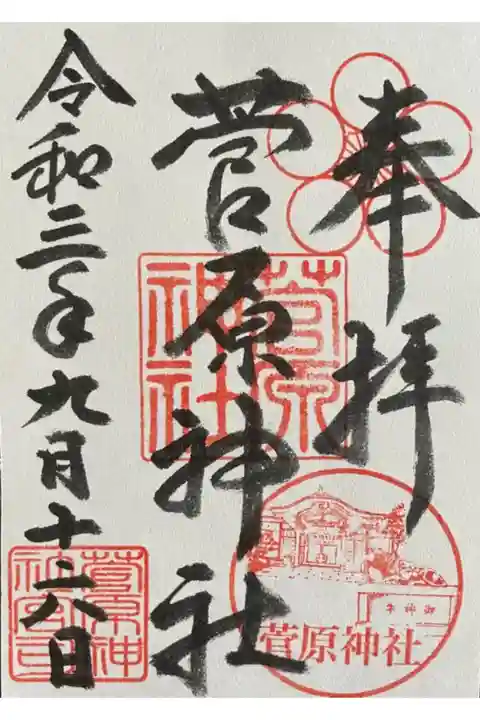 奉拝
菅原神社
令和三年九月十六日
菅原神社
御神牛
菅原神社
菅原神社宮司